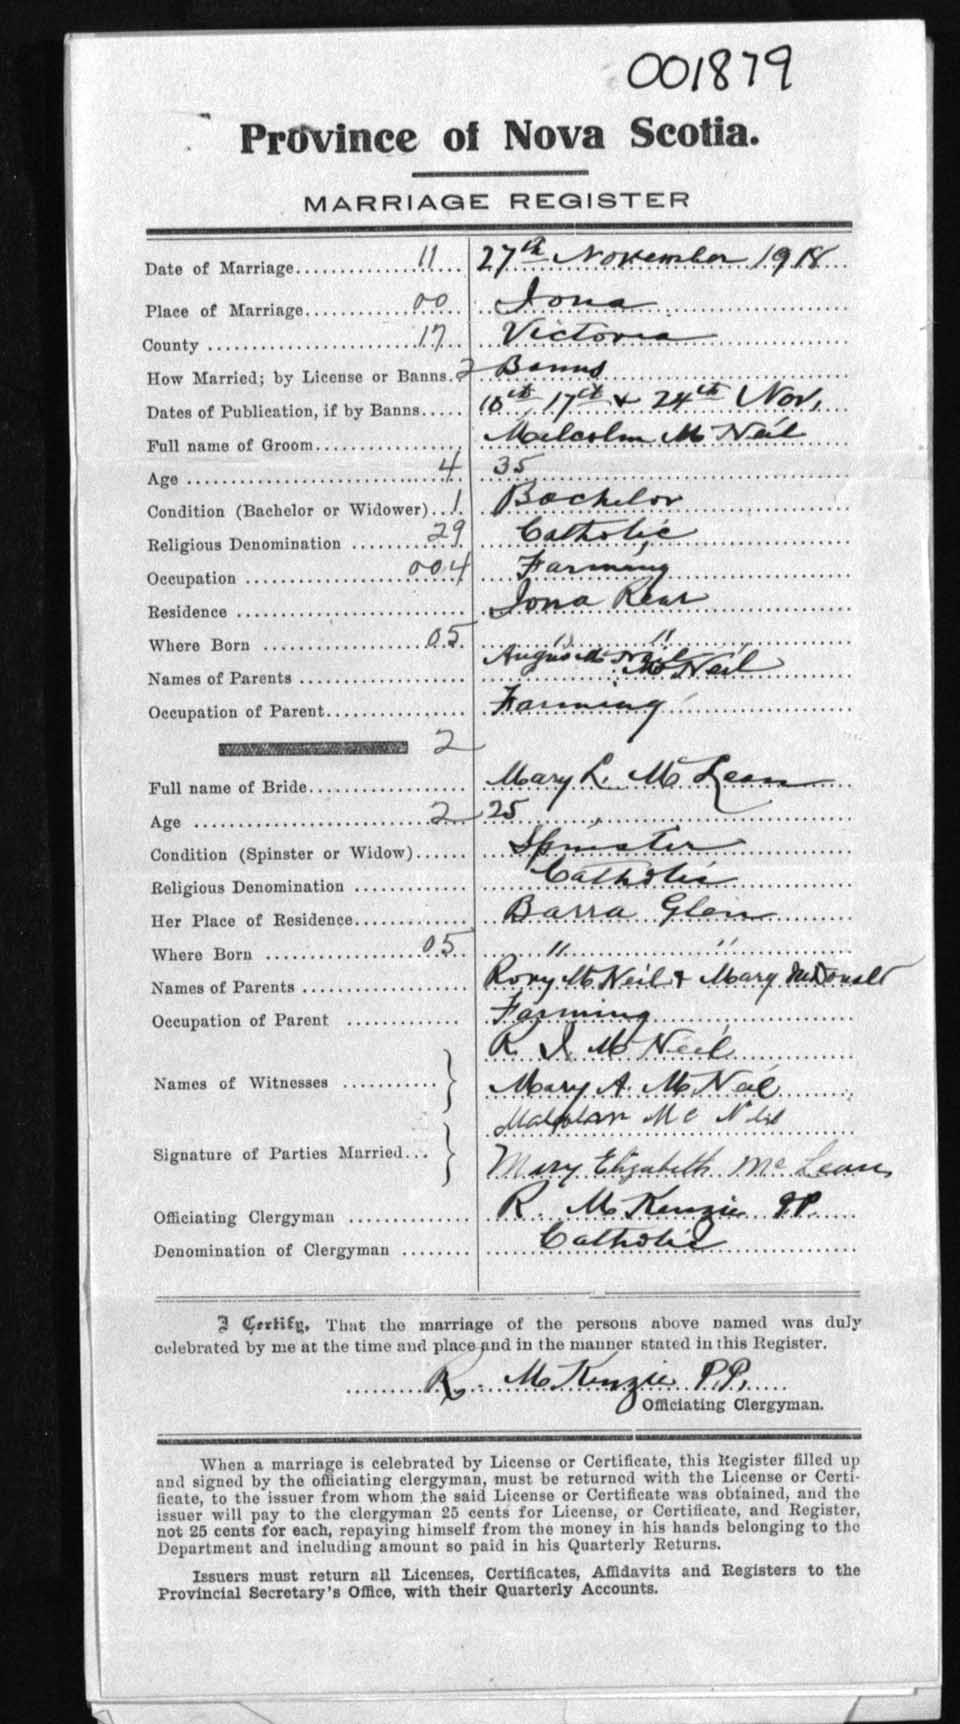 001879
Province of Nova Scotia.
MARRIAGE REGISTER
Date of Marriage 11 27th November 1918
Place of Marriage 00 Iona
County 17 Victoria
How Married; by License or Banns. 2 Banns
Dates of Publication, if by Banns 10th, 17th & 24th Nov.
Full name of Groom Malcolm McNeil
Age 4 35
Condition (Bachelor or Widower) 1 Bachelor
Religious Denomination 29 Catholic
Occupation 004 Farming
Residence Iona Rear
Where Born 05 " "
Names of Parents McNeil
Occupation of Parent Farming
2
Full name of Bride Mary L. McLean
Age 2 25
Condition (Spinster or Widow) Spinster
Religious Denomination Catholic
Her Place of Residence Barra Glen
Where Born 05 " "
Names of Parents Rory McNeil & Mary McDonald
Occupation of Parent Farming
R. J. McNeil
Names of Witnesses Mary A. McNeil
Malcolm Mc Neil
Signature of Parties Married Mary Elizabeth Mc Lean
Officiating Clergyman R. McKenzie P.P.
Denomination of Clergyman Catholic
I Certify, That the marriage of the persons above named was duly
celebrated by me at the time and place and in the manner stated in this Register.
R. McKenzie P.P.
Officiating Clergyman.
When a marriage is celebrated by License or Certificate, this Register filled up
and signed by the officiating clergyman, must be returned with the License or Certi-
ficate, to the issuer from whom the said License or Certificate was obtained, and the
issuer will pay to the clergyman 25 cents for License, or Certificate, and Register,
not 25 cents for each, repaying himself from the money in his hands belonging to the
Department and including amount so paid in his Quarterly Returns.
Issuers must return all Licenses, Certificates, Affidavits and Registers to the
Provincial Secretary's Office, with their Quarterly Accounts.